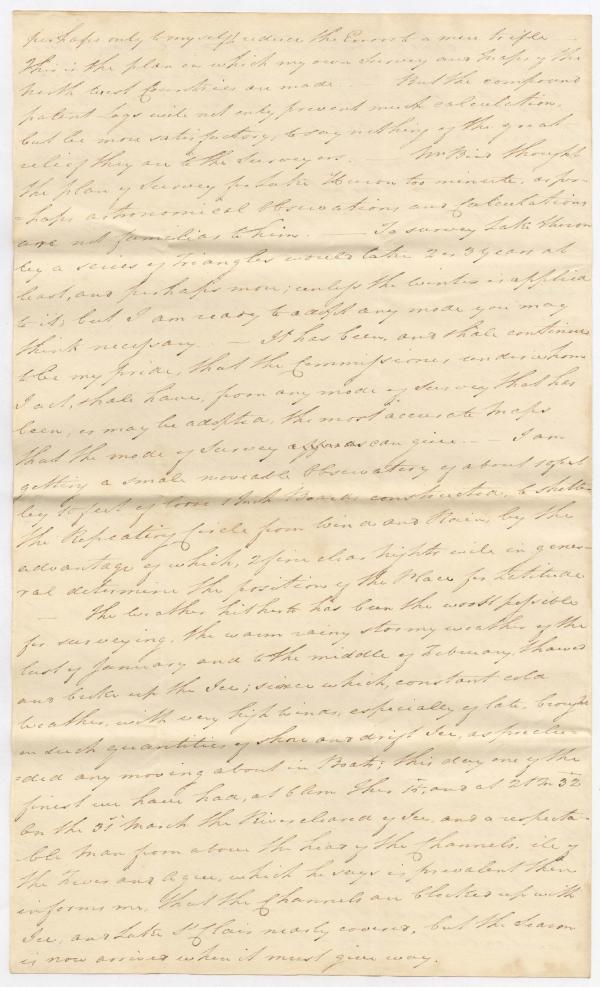 perhaps only to myself reduce the Errors to a mere trifle
This is the plan on which my own Survey and Maps of the
North West Countries are made. — But the compound
patent Logs will not only prevent much calculation,
but be more satisfactory, to say nothing of the great
relief they are to the Surveyors. — Mr Bird thought
the plan of Survey for Lake Huron too minute, as per-
-haps astronomical Observations and Calculations
are not familiar to him. — To survey Lake Huron
by a series of triangles would take 2 or 3 years at
least, and perhaps more; unless the winter is applied
to it; but I am ready to adopt any mode you may
think necessary. — It has been, and shall continue
to be my pride, that the Commissioner under whom
I act, shall have, from any mode of Survey that has
been, or may be adopted, the most accurate Maps
that the mode of Survey can give. — I am
getting a small moveable Observatory of about 10 feet
by 10 feet of loose 1 Inch Boards constructed, to shelter
the Repeating Circle from Wind and Rain, by the
advantage of which, 2 fine clear nights will in gene-
ral determine the position of the Place for Latitude
— The weather hitherto has been the worst possible
for surveying, the warm rainy stormy weather of the
last of January and to the middle of February, thawed
and broke up the Ice; since which, constant cold
weather, with very high winds, especially of late, brought
in such quantities of shore and drift Ice, as preclu-
-ded any moving about in Boats; this day one of the
finest we have had, at 6 Am Ther 15, and at 2 Pm 32
On the 31st March the River cleared of Ice, and a respecta-
ble Man from above the head of the Channels, ill of
the Fever and Ague, which he says is prevalent there
informs me, that the Channels are blocked up with
Ice, and Lake St Clair nearly covered, but the Season
is now arrived when it must give way.